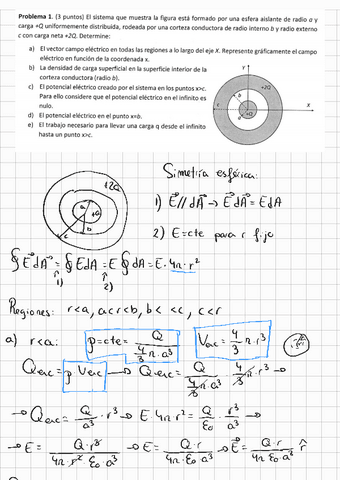 Problema 1. (3 puntos) El sistema que muestra la figura está formado por una esfera aislante de radio a y
carga +Q uniformemente distribuida, rodeada por una corteza conductora de radio interno b y radio externo
c con carga neta +2Q. Determine:
a) El vector campo eléctrico en todas las regiones a lo largo del eje X. Represente gráficamente el campo
eléctrico en función de la coordenada x.
b) La densidad de carga superficial en la superficie interior de la
corteza conductora (radio b).
c) El potencial eléctrico creado por el sistema en los puntos x>c.
Para ello considere que el potencial eléctrico en el infinito es
nulo.
d) El potencial eléctrico en el punto x=b.
e) El trabajo necesario para llevar una carga q desde el infinito
hasta un punto x>c.
Y
+2Q
b
c
X
+Q
a
+2Q
a
+Q
b
c
Simetría esférica:
1) E⃗//dA⃗ → E⃗dA⃗ = EdA
2) E=cte para r fijo
∮E⃗dA⃗ = ∮EdA = E∮dA = E·4π·r²
1)
2)
Regiones: r<a, a<r<b, b< <c, c<r
a) r<a: ρ=cte= Q / (4/3 π·a³) Vac = 4/3 π·r³
Qenc = ρ Vac → Qenc = Q / (4/3 π·a³) · 4/3 π·r³ →
→ Qenc = Q/a³ · r³ → E·4π r² = Q/ε₀ · r³/a³ →
→ E = Q·r³ / (4π·r²·ε₀·a³) → E = Q·r / (4π·ε₀·a³) → E⃗ = Q·r / (4π ε₀ a³) r̂